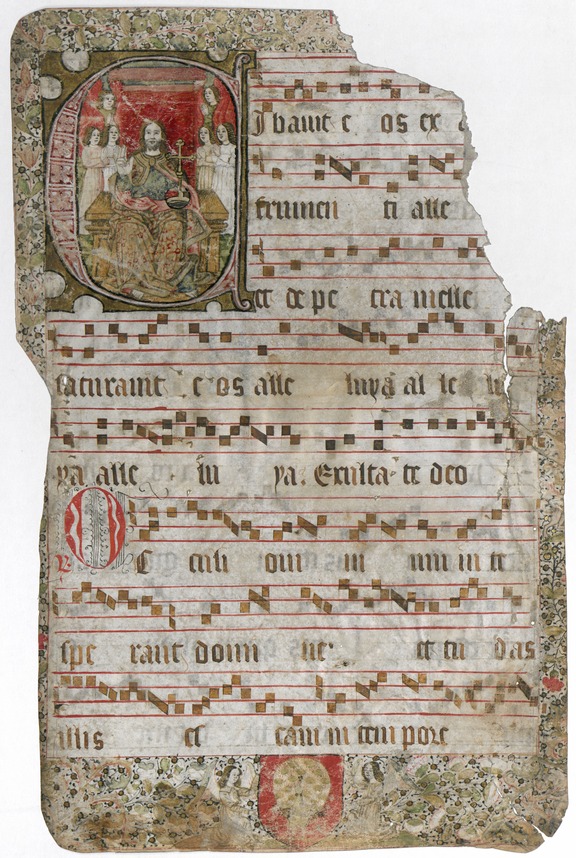 Cibavit e os ex a
frumen ti alle
et de pe tra melle
saturavit e os alle luya al le lu
ya alle lu ya. Exulta te deo
Oc culi omni um in te
spe rant domi ne et tu das
illis es cam in tempore